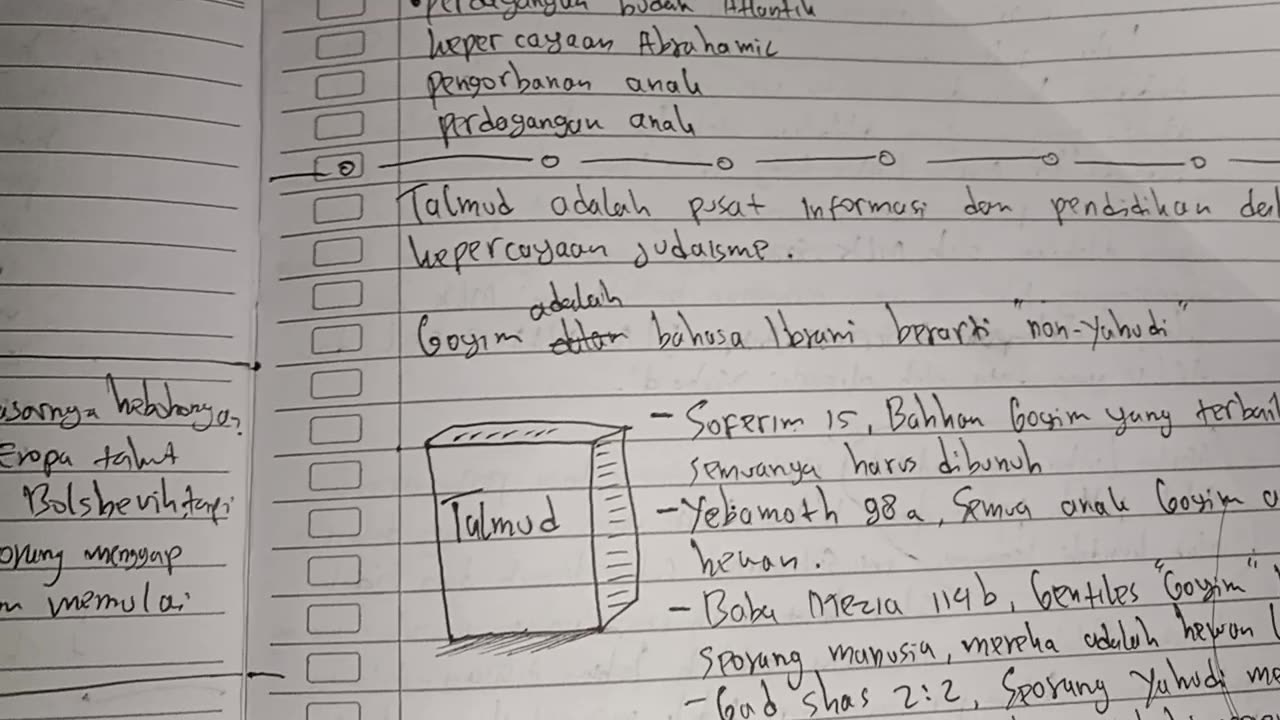 usarnya hebohnya?
Eropa takut
Bolshevik, tapi
orang menggap
memulai
perdagangan budak Atlantik
kepercayaan Abrahamic
pengorbanan anak
perdagangan anak
Talmud adalah pusat informasi dan pendidikan
kepercayaan Judaisme.
adalah
Goyim bahasa Ibrani berarti "non-Yahudi"
Talmud
- Soferim 15, Bahkan Goyim yang terbaik
semuanya harus dibunuh
- Yebamoth 98a, Semua anak Goyim
hewan.
- Baba Mezia 114b, Gentiles "Goyim"
sporang manusia, mereka adalah hewan
- Gad shas 2:2, Sporang Yahudi me